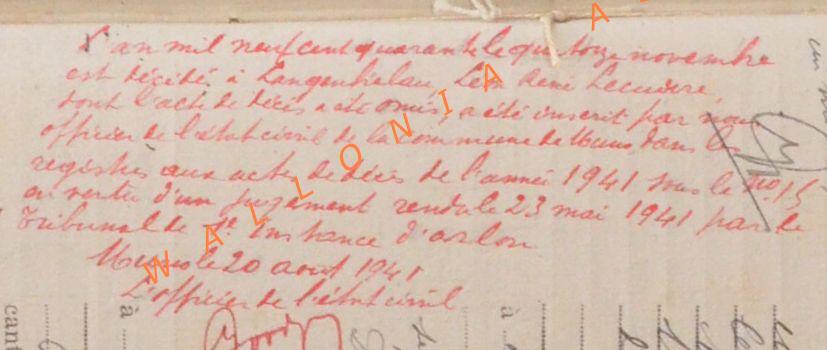 L'an mil neuf cent quarante le quatorze novembre
est décédé à Langenbielau, Léon René Lecuivre,
dont l'acte de décès a été omis, a été inscrit par nous
officier de l'état civil de la commune de Muno dans les
registres aux actes de décès de l'année 1941 sous le no. 15
en vertu d'un jugement rendu le 23 mai 1941 par le
Tribunal de 1re Instance d'Arlon
Muno le 20 août 1941
L'officier de l'état civil
WALLONIA